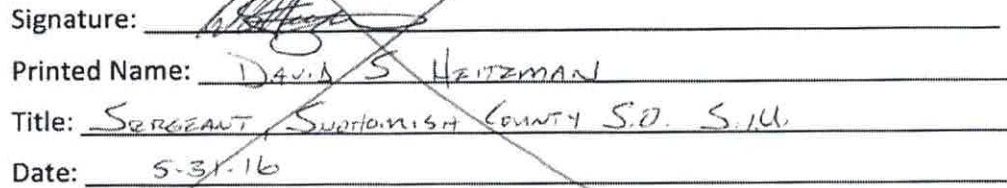 Signature:
Printed Name: DAVID S HEITZMAN
Title: SERGEANT, SNOHOMISH COUNTY S.O. S.I.U.
Date: 5-31-16